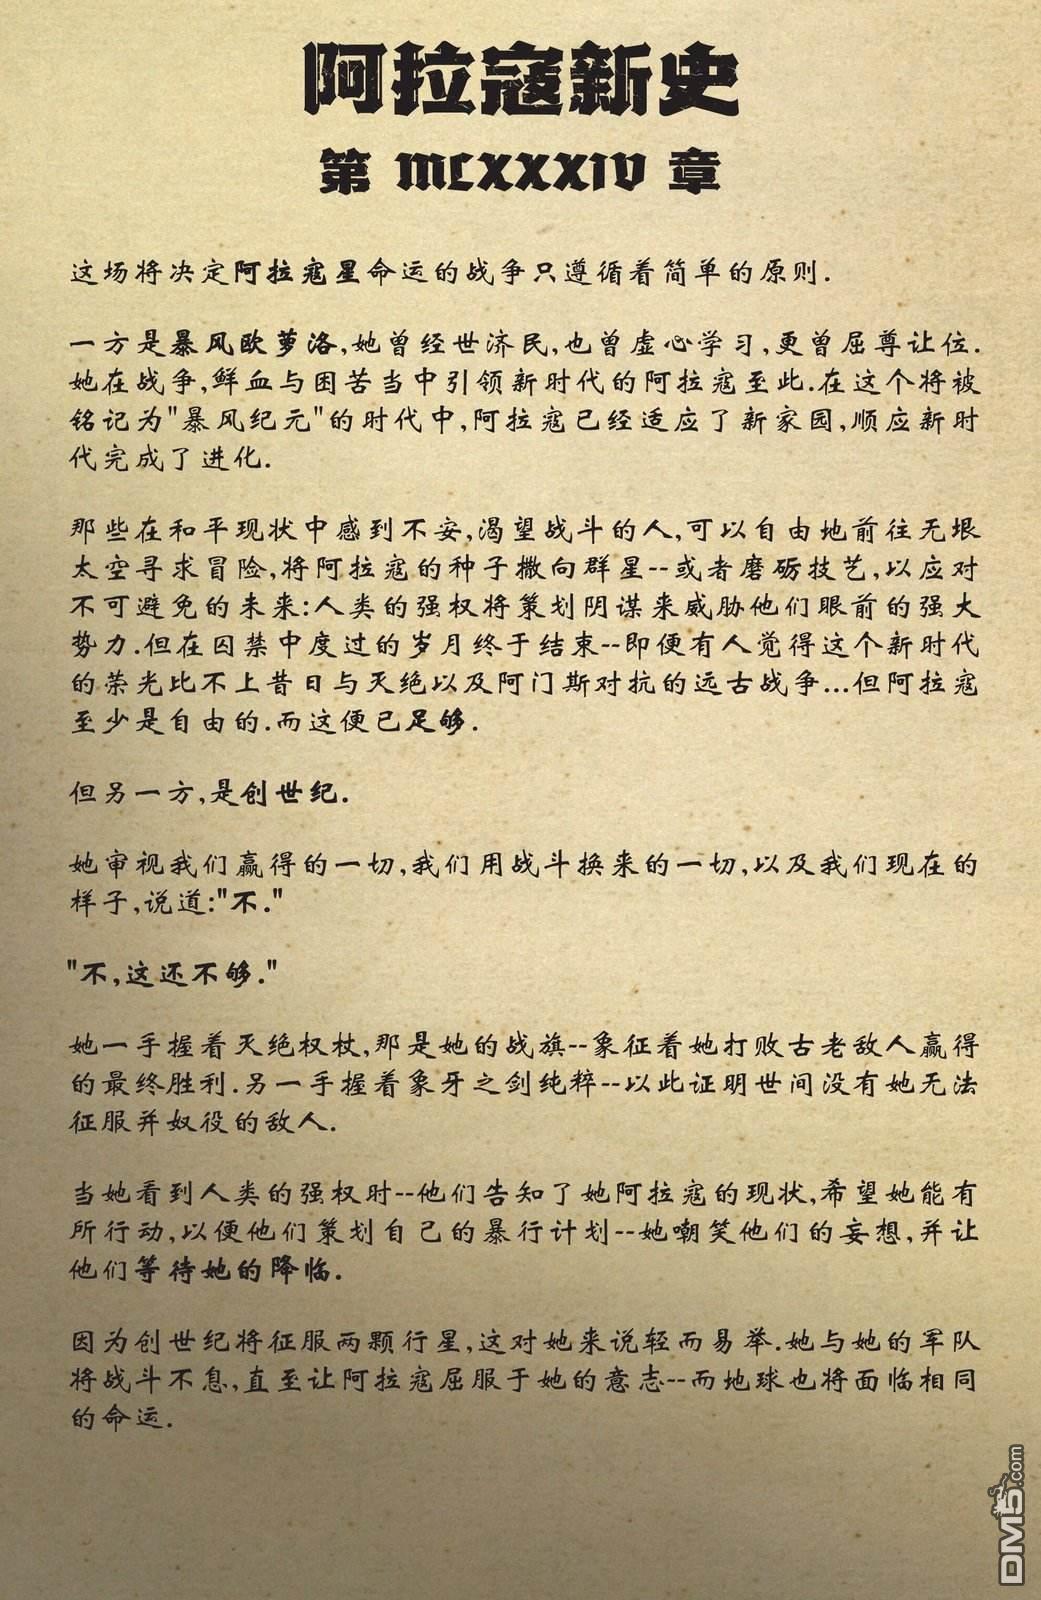 阿拉寇新史
第 MCXXXIV 章
这场将决定阿拉寇星命运的战争只遵循着简单的原则.
一方是暴风欧萝洛,她曾经世济民,也曾虚心学习,更曾屈尊让位.
她在战争,鲜血与困苦当中引领新时代的阿拉寇至此.在这个将被
铭记为"暴风纪元"的时代中,阿拉寇已经适应了新家园,顺应新时
代完成了进化.
那些在和平现状中感到不安,渴望战斗的人,可以自由地前往无垠
太空寻求冒险,将阿拉寇的种子撒向群星--或者磨砺技艺,以应对
不可避免的未来:人类的强权将策划阴谋来威胁他们眼前的强大
势力.但在囚禁中度过的岁月终于结束--即便有人觉得这个新时代
的荣光比不上昔日与灭绝以及阿门斯对抗的远古战争...但阿拉寇
至少是自由的.而这便已足够.
但另一方,是创世纪.
她审视我们赢得的一切,我们用战斗换来的一切,以及我们现在的
样子,说道:"不."
"不,这还不够."
她一手握着灭绝权杖,那是她的战旗--象征着她打败古老敌人赢得
的最终胜利.另一手握着象牙之剑纯粹--以此证明世间没有她无法
征服并奴役的敌人.
当她看到人类的强权时--他们告知了她阿拉寇的现状,希望她能有
所行动,以便他们策划自己的暴行计划--她嘲笑他们的妄想,并让
他们等待她的降临.
因为创世纪将征服两颗行星,这对她来说轻而易举.她与她的军队
将战斗不息,直至让阿拉寇屈服于她的意志--而地球也将面临相同
的命运.
DM5.com